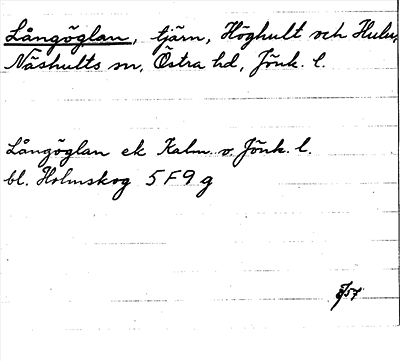 Långöglan, tjärn, Höghult och Hulu,
Näshults sn, Östra hd, Jönk. l.
Långöglan ek Kalm. o. Jönk. l.
bl. Holmskog 5F9g